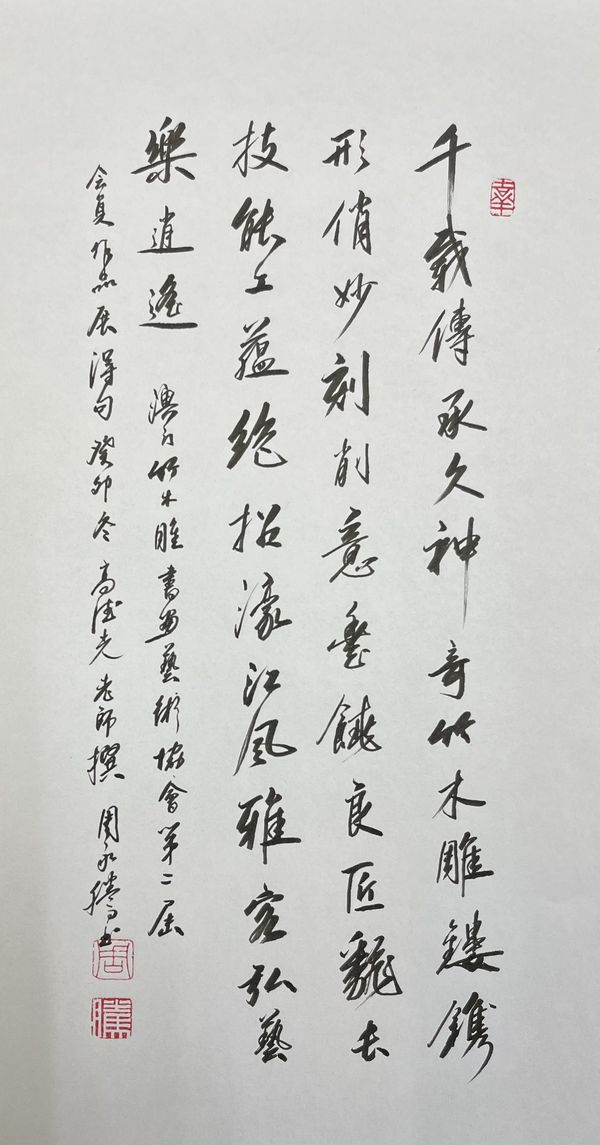 千載傳承久神奇竹木雕鏤鐫
形俏妙刻削意饒良匠長
技能工蘊絕招濠江風雅客弘藝
樂逍遙 澳门竹木雕書畫藝術協會第二屆
会員作品展得句 癸卯冬 高德光老師撰 周永騰书
周
騰